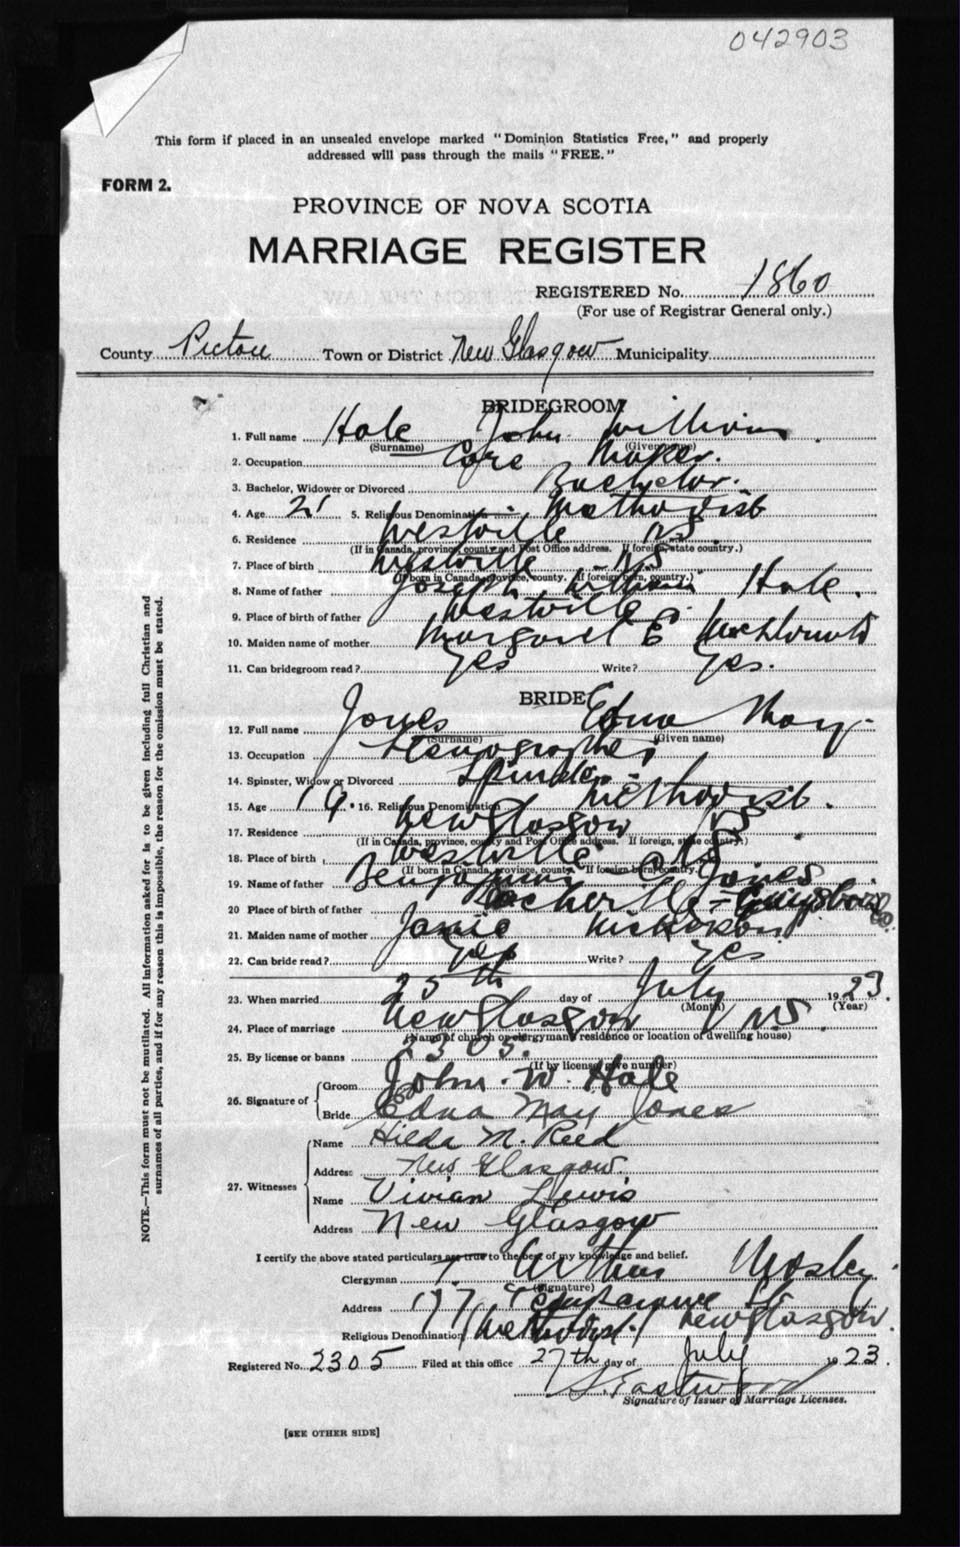 042903
This form if placed in an unsealed envelope marked "Dominion Statistics Free," and properly
addressed will pass through the mails "FREE."
FORM 2.
PROVINCE OF NOVA SCOTIA
MARRIAGE REGISTER
REGISTERED No. 1860
(For use of Registrar General only.)
County Pictou Town or District New Glasgow Municipality
BRIDEGROOM
1. Full name Hale John William
(Surname) (Given name)
2. Occupation Core Maker.
3. Bachelor, Widower or Divorced Bachelor.
4. Age 21 5. Religious Denomination Methodist
6. Residence Westville NS
(If in Canada, province, county and Post Office address. If foreign, state country.)
7. Place of birth Westville NS
(If born in Canada, province, county. If foreign born, country.)
8. Name of father Joseph William Hale.
9. Place of birth of father Westville.
10. Maiden name of mother Margaret E
11. Can bridegroom read? Yes Write? Yes.
BRIDE
12. Full name Jones Edna May
(Surname) (Given name)
13. Occupation Stenographer
14. Spinster, Widow or Divorced Spinster
15. Age 19. 16. Religious Denomination Methodist.
17. Residence New Glasgow NS
(If in Canada, province, county and Post Office address. If foreign, state country.)
18. Place of birth Westville NS
(If born in Canada, province, county. If foreign born, country.)
19. Name of father Benjamin Jones
20 Place of birth of father
21. Maiden name of mother Janie
22. Can bride read? Yes Write? Yes
23. When married 25th day of July 1923.
(Month) (Year)
24. Place of marriage New Glasgow NS.
(Name of church or clergyman's residence or location of dwelling house)
25. By license or banns 2305.
(If by license, give number)
26. Signature of Groom John. W. Hale
Bride Edna May Jones
27. Witnesses Name Hilda M. Reed
Address New Glasgow.
Name Vivian Lewis
Address New Glasgow
I certify the above stated particulars are true to the best of my knowledge and belief.
Clergyman T. Arthur Mosley
(Signature)
Address 177 Temperance St
Religious Denomination Methodist. New Glasgow.
Registered No. 2305 Filed at this office 27th day of July 1923.
S. Eastwood
Signature of Issuer of Marriage Licenses.
[SEE OTHER SIDE]
NOTE.—This form must not be mutilated. All information asked for is to be given including full Christian and
surnames of all parties, and if for any reason this is impossible, the reason for the omission must be stated.